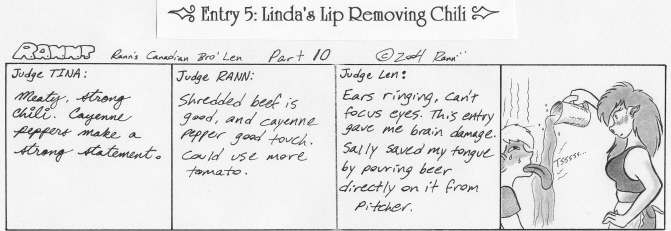 Entry 5: Linda's Lip Removing Chili
RANNT Rann's Canadian Bro' Len Part 10 ©2004 Rann
Judge TINA:
Meaty, strong
chili. Cayenne
peppers make a
strong statement.
Judge RANN:
Shredded beef is
good, and cayenne
pepper good touch.
Could use more
tomato.
Judge Len:
Ears ringing, can't
focus eyes. This entry
gave me brain damage.
Sally saved my tongue
by pouring beer
directly on it from
Pitcher.
Tsssss...